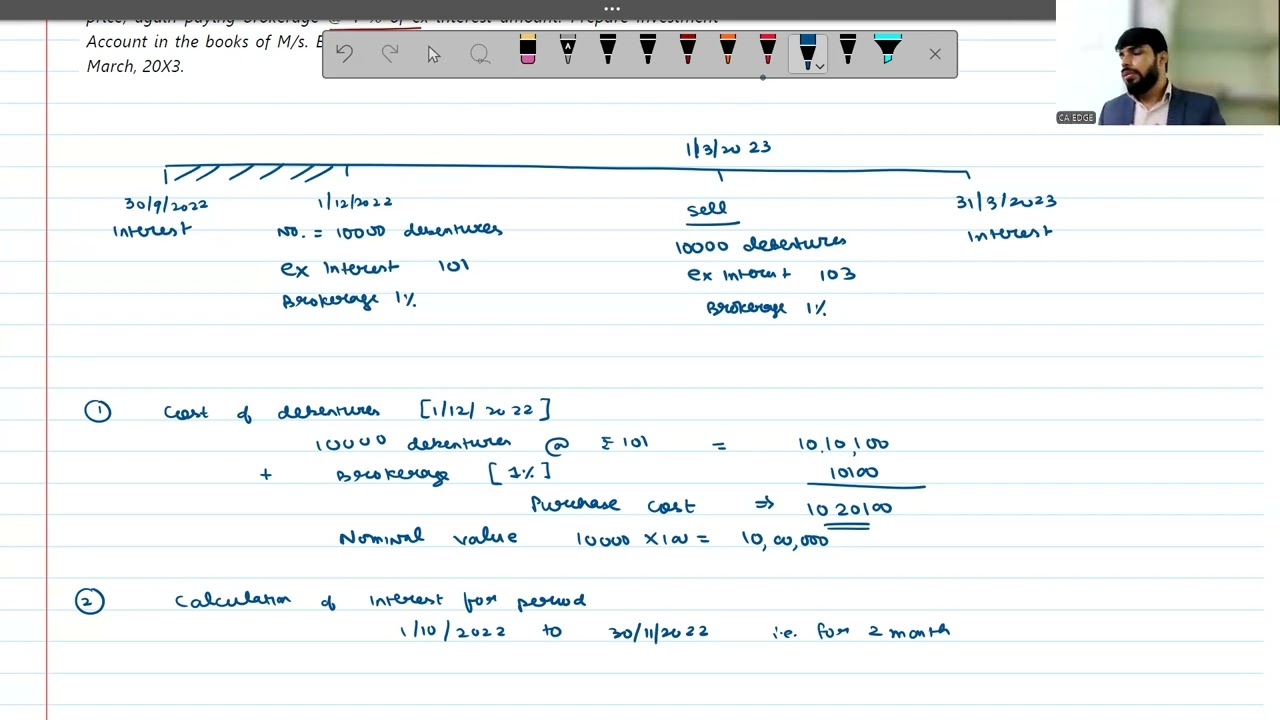 price, again paying brokerage @ 1 % of ex-interest amount. Prepare Investment
Account in the books of M/s. B
March, 20X3.
CA EDGE
1/3/2023
30/9/2022 1/12/2022 Sell 31/3/2023
Interest No. = 10000 debentures 10000 debentures Interest
ex Interest 101 ex Interest 103
Brokerage 1% Brokerage 1%
① Cost of debentures [1/12/2022]
10000 debentures @ ₹ 101 = 10,10,100
+ Brokerage [1%] 10100
Purchase cost ⇒ 1020100
Nominal value 10000 X 100 = 10,00,000
② Calculation of interest for period
1/10/2022 to 30/11/2022 i.e. for 2 month